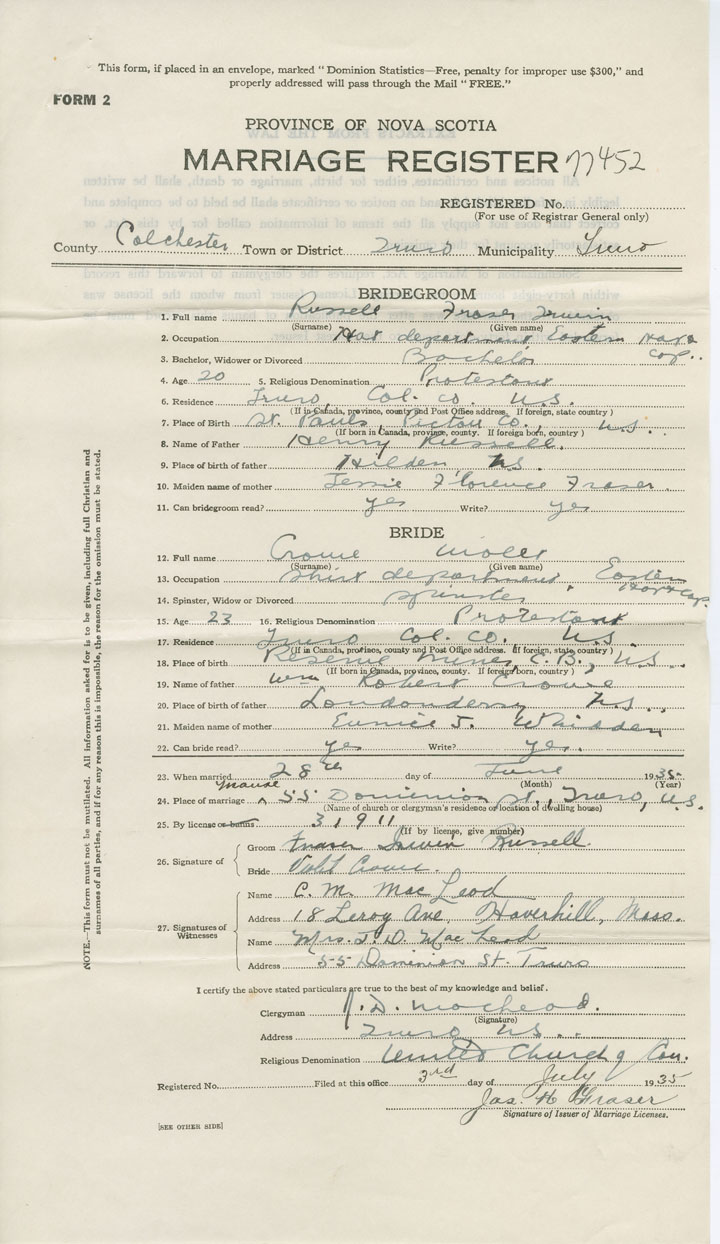 This form, if placed in an envelope, marked "Dominion Statistics—Free, penalty for improper use $300," and
properly addressed will pass through the Mail "FREE."
FORM 2
PROVINCE OF NOVA SCOTIA
MARRIAGE REGISTER 77452
REGISTERED No.
(For use of Registrar General only)
County Colchester Town or District Truro Municipality Truro
BRIDEGROOM
1. Full name Russell Fraser Irwin
(Surname) (Given name)
2. Occupation Hat department Eastern Hat &
Cap.
3. Bachelor, Widower or Divorced Bachelor
4. Age 20 5. Religious Denomination Protestant
6. Residence Truro, Col. Co. N.S.
(If in Canada, province, county and Post Office address. If foreign, state country)
7. Place of Birth St. Pauls Pictou Co., N.S.
(If born in Canada, province, county. If foreign born, country)
8. Name of Father Henry Russell.
9. Place of birth of father Hilden N.S.
10. Maiden name of mother Jessie Florence Fraser
11. Can bridegroom read? yes Write? yes
BRIDE
12. Full name Crowe Violet
(Surname) (Given name)
13. Occupation Shirt department, Eastern
Hat & Cap.
14. Spinster, Widow or Divorced spinster
15. Age 23 16. Religious Denomination Protestant
17. Residence Truro Col. Co. N.S.
(If in Canada, province, county and Post Office address. If foreign, state country)
18. Place of birth Reserve Mines, C.B., N.S.
(If born in Canada, province, county. If foreign born, country)
19. Name of father Wm Robert Crowe
20. Place of birth of father Londonderry N.S.
21. Maiden name of mother Eunice J. Whidden
22. Can bride read? yes Write? yes.
23. When married 28th day of June 1935
(Month) (Year)
24. Place of marriage Manse 55 Dominion St., Truro, N.S.
(Name of church or clergyman's residence or location of dwelling house)
25. By license or banns 31911
(If by license, give number)
26. Signature of
Groom Fraser Irwin Russell
Bride Violet Crowe.
27. Signatures of Witnesses
Name C. M. MacLeod
Address 18 Leroy Ave, Haverhill, Mass.
Name Mrs. J. D. MacLeod
Address 55 Dominion St. Truro
I certify the above stated particulars are true to the best of my knowledge and belief.
Clergyman J. D. MacLeod.
(Signature)
Address Truro N.S.
Religious Denomination United Church of Can.
Registered No. Filed at this office 3rd day of July 1935
Jas. H Fraser
Signature of Issuer of Marriage Licenses.
[SEE OTHER SIDE]
NOTE.—This form must not be mutilated. All information asked for is to be given, including full Christian and
surnames of all parties, and if for any reason this is impossible, the reason for the omission must be stated.